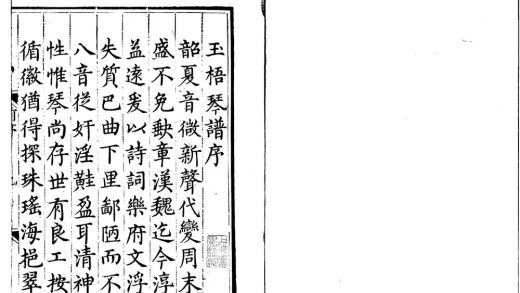 玉梧琴譜序
韶夏音微新聲代變周末
盛不免缺章漢魏迄今淳
益遠爰以詩詞樂府文浮
失質巴曲下里鄙陋而不
八音從奸淫䵷盈耳清神
性惟琴尚存世有良工按
循徽猶得探珠瑤海挹翠